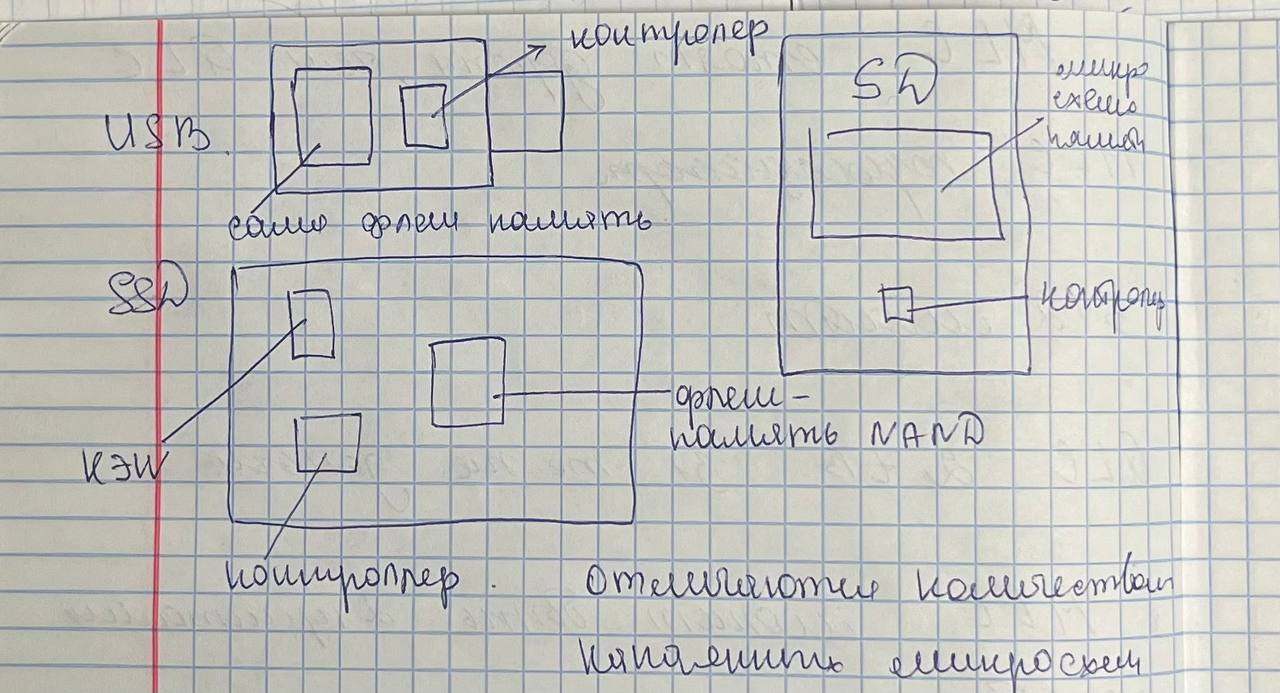 контролер
USB.
само флеш память
SD
микро
схема
памяти
контролер
SSD
кэш
флеш-
память NAND
контроллер.
Отличаются количеством
микросхем